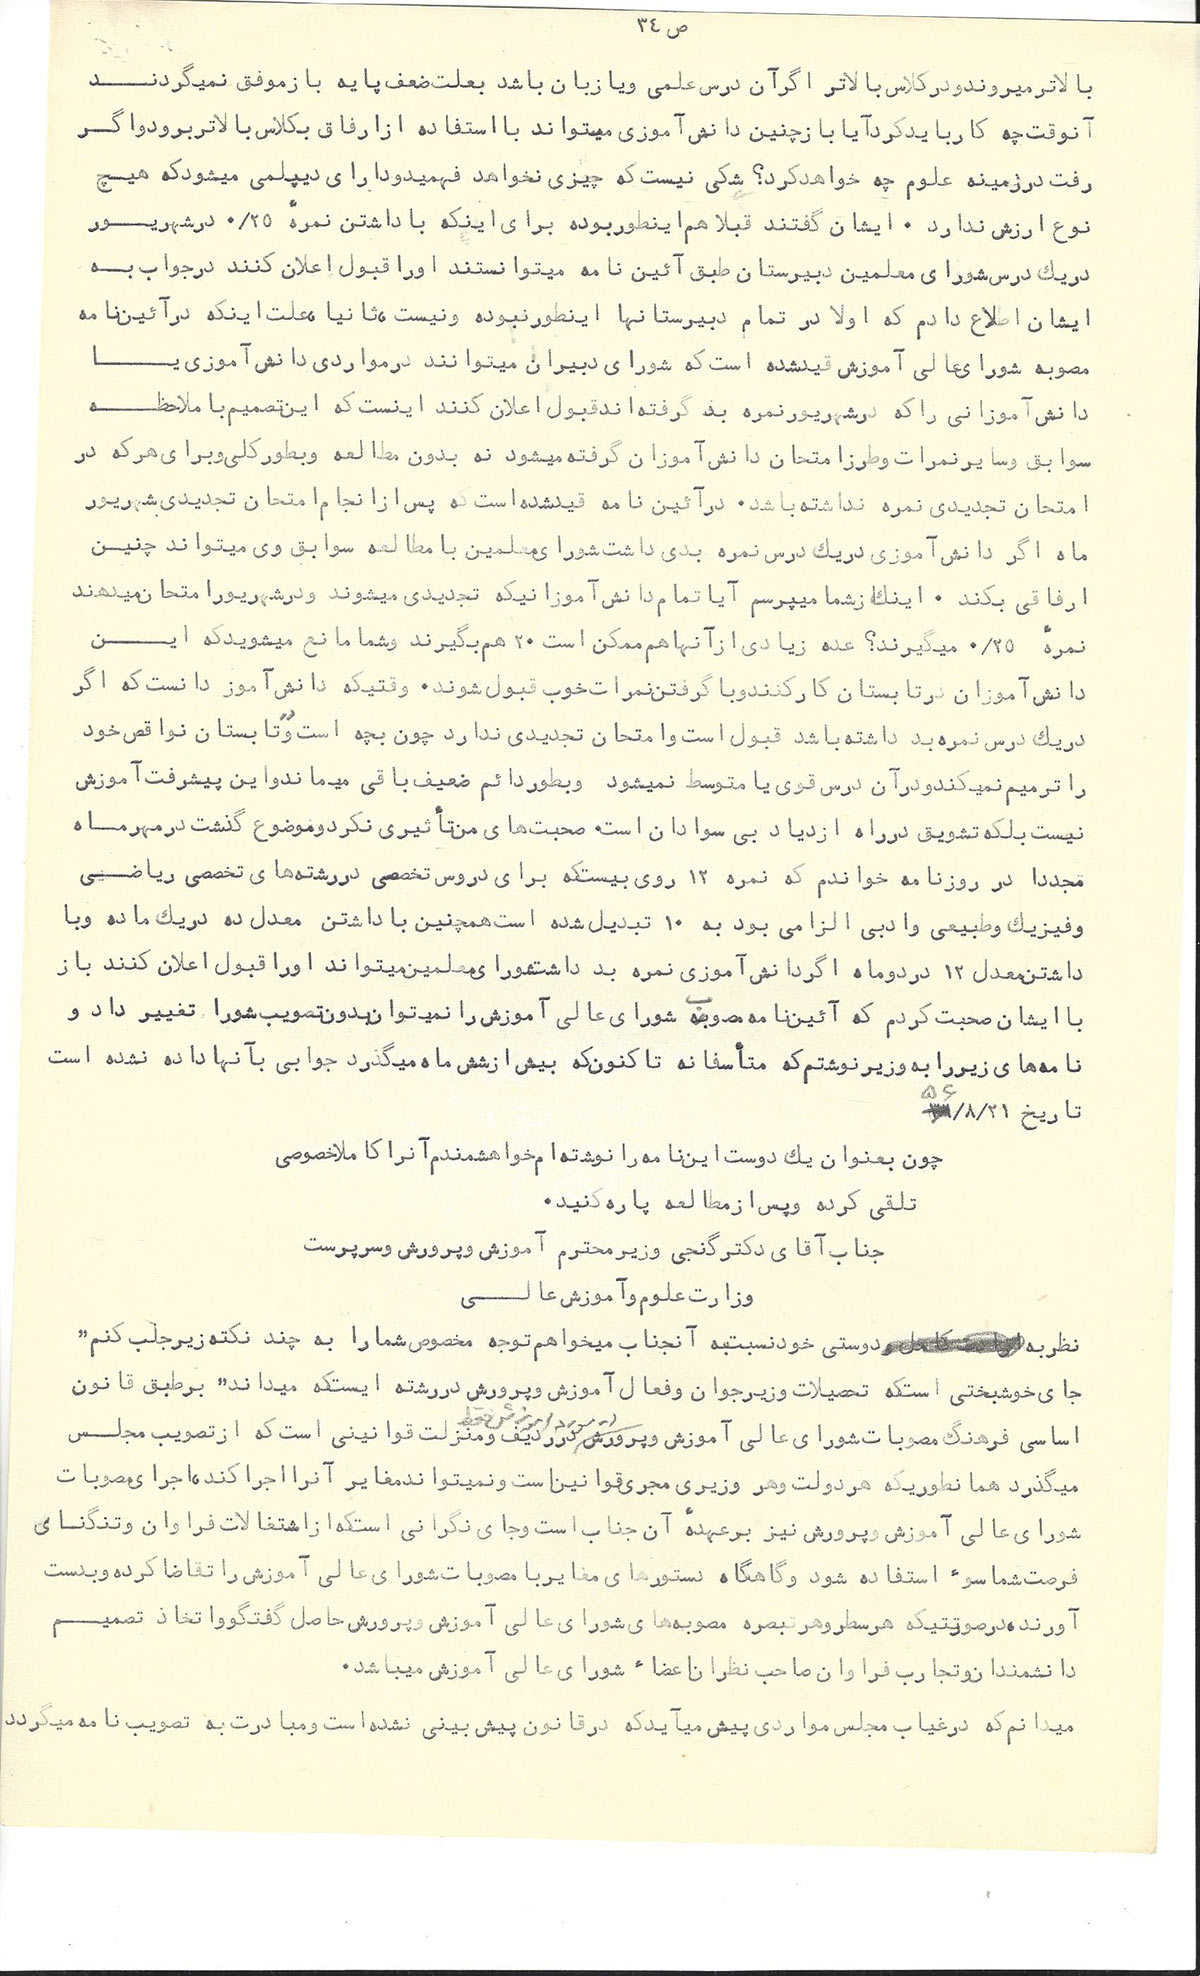 ص ٣٤
بالاتر میروند و در کلاس بالاتر اگر آن درس علمی و یا زبان باشد بعلت ضعف پایه باز موفق نمیگردنــد
آنوقت چه کار باید کرد آیا باز چنین دانش آموزی میتواند با استفاده از ارفاق بکلاس بالاتر برود و اگــر
رفت در زمینه علوم چه خواهد کرد؟ شکی نیست که چیزی نخواهد فهمید و دارای دیپلمی میشود که هیــچ
نوع ارزش ندارد ۰ ایشان گفتند قبلا هم اینطور بوده برای اینکه با داشتن نمرهٔ ۰/۲۵ در شهریــور
در یك درس شورای معلمین دبیرستان طبق آئین نامه میتوانستند او را قبول اعلان کنند در جواب بــه
ایشان اطلاع دادم که اولا در تمام دبیرستانها اینطور نبوده و نیست، ثانیا علت اینکه در آئین نامه
مصوبه شورای عالی آموزش قید شده است که شورای دبیران میتوانند در مواردی دانش آموزی یــا
دانش آموزانی را که در شهریور نمره بد گرفته اند قبول اعلان کنند اینست که این تصمیم با ملاحظــه
سوابق و سایر نمرات و طرز امتحان دانش آموزان گرفته میشود نه بدون مطالعه و بطور کلی و برای هر که در
امتحان تجدیدی نمره نداشته باشد۰ در آئین نامه قید شده است که پس از انجام امتحان تجدیدی شهریور
ماه اگر دانش آموزی در یك درس نمره بدی داشت شورای معلمین با مطالعه سوابق وی میتواند چنیــن
ارفاقی بکند ۰ اینك از شما میپرسم آیا تمام دانش آموزانیکه تجدیدی میشوند و در شهریور امتحان میدهند
نمرهٔ ۰/۲۵ میگیرند؟ عده زیادی از آنها هم ممکن است ۲۰ هم بگیرند و شما مانع میشوید که ایــن
دانش آموزان در تابستان کار کنند و با گرفتن نمرات خوب قبول شوند۰ وقتیکه دانش آموز دانست که اگر
در یك درس نمره بد داشته باشد قبول است و امتحان تجدیدی ندارد چون بچه است و تابستان نواقص خود
را ترمیم نمیکند و در آن درس قوی یا متوسط نمیشود و بطور دائم ضعیف باقی میماند و این پیشرفت آموزش
نیست بلکه تشویق در راه ازدیاد بی سوادان است۰ صحبت های من تأثیری نکرد و موضوع گذشت در مهر مــاه
مجددا در روزنامه خواندم که نمره ۱۲ روی بیست که برای دروس تخصصی در رشته های تخصصی ریاضــی
و فیزیك و طبیعی و ادبی الزامی بود به ۱۰ تبدیل شده است همچنین با داشتن معدل ده در یك ماده و با
داشتن معدل ۱۲ در دو ماه اگر دانش آموزی نمره بد داشت شورای معلمین میتواند او را قبول اعلان کنند باز
با ایشان صحبت کردم که آئین نامه مصوب شورای عالی آموزش را نمیتوان بدون تصویب شورا تغییر داد و
نامه های زیر را به وزیر نوشتم که متأسفانه تاکنون که بیش از شش ماه میگذرد جوابی بآنها داده نشده است
تاریخ ۲۱/۸/۵۶
چون بعنوان یك دوست این نامه را نوشته ام خواهشمندم آنرا کاملا خصوصی
تلقی کرده و پس از مطالعه پاره کنید۰
جناب آقای دکتر گنجی وزیر محترم آموزش و پرورش و سرپرست
وزارت علوم و آموزش عالــی
نظر به دوستی خود نسبت به آنجناب میخواهم توجه مخصوص شما را به چند نکته زیر جلب کنم"
جای خوشبختی است که تحصیلات وزیر جوان و فعال آموزش و پرورش در رشته ایست که میداند" بر طبق قانون
اساسی فرهنگ مصوبات شورای عالی آموزش و پرورش در مورد آموزش فقط در ردیف و منزلت قوانینی است که از تصویب مجلــس
میگذرد همانطوریکه هر دولت و هر وزیری مجری قوانین است و نمیتواند مغایر آنرا اجرا کند، اجرای مصوبات
شورای عالی آموزش و پرورش نیز بر عهدهٔ آن جناب است و جای نگرانی است که از اشتغالات فراوان و تنگنــای
فرصت شما سوء استفاده شود و گاهگاه دستورهای مغایر با مصوبات شورای عالی آموزش را تقاضا کرده و بدست
آورند، در صورتیکه هر سطر و هر تبصره مصوبه های شورای عالی آموزش و پرورش حاصل گفتگو و اتخاذ تصمیــم
دانشمندان و تجارب فراوان صاحب نظران اعضاء شورای عالی آموزش میباشد۰
میدانم که در غیاب مجلس مواردی پیش میآید که در قانون پیش بینی نشده است و مبادرت به تصویب نامه میگردد